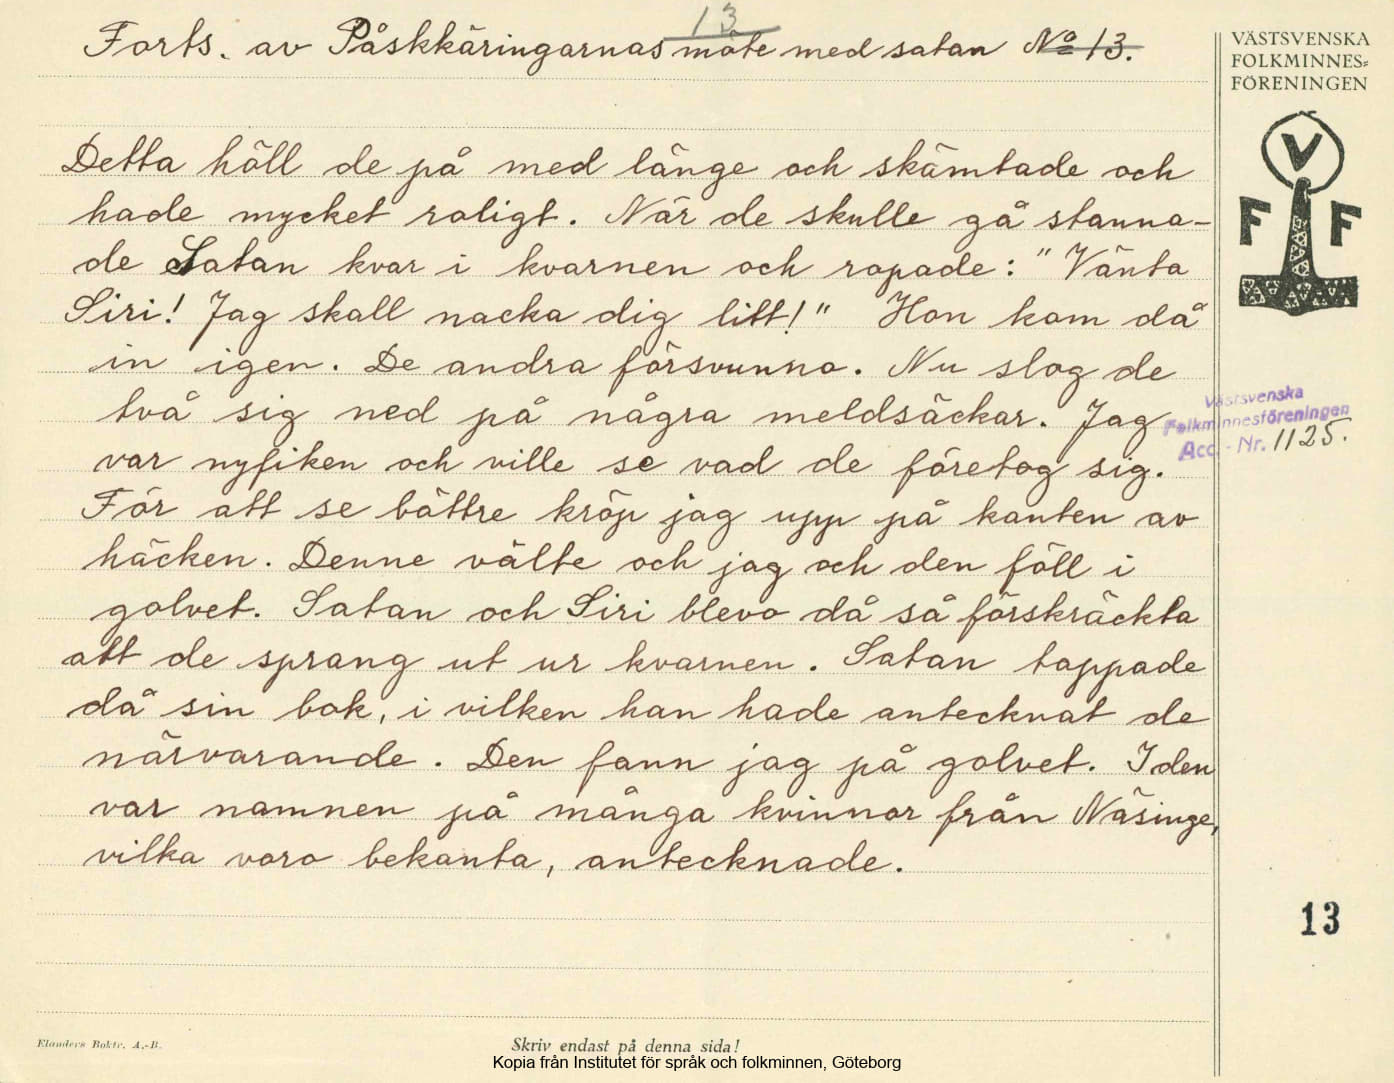 13
Forts. av Påskkäringarnas möte med satan No 13.
VÄSTSVENSKA
FOLKMINNES=
FÖRENINGEN
V
F F
Detta höll de på med länge och skämtade och
hade mycket roligt. När de skulle gå stanna-
de Satan kvar i kvarnen och ropade: "Vänta
Siri! Jag skall nacka dig litt!" Hon kom då
in igen. De andra försvunno. Nu slog de
två sig ned på några meldsäckar. Jag
Västsvenska
Folkminnesföreningen
Acc.-Nr. 1125.
var nyfiken och ville se vad de företog sig.
För att se bättre kröp jag upp på kanten av
häcken. Denne välte och jag och den föll i
golvet. Satan och Siri blevo då så förskräckta
att de sprang ut ur kvarnen. Satan tappade
då sin bok, i vilken han hade antecknat de
närvarande. Den fann jag på golvet. I den
var namnen på många kvinnor från Näsinge,
vilka voro bekanta, antecknade.
13
Elanders Boktr. A.-B.
Skriv endast på denna sida!
Kopia från Institutet för språk och folkminnen, Göteborg